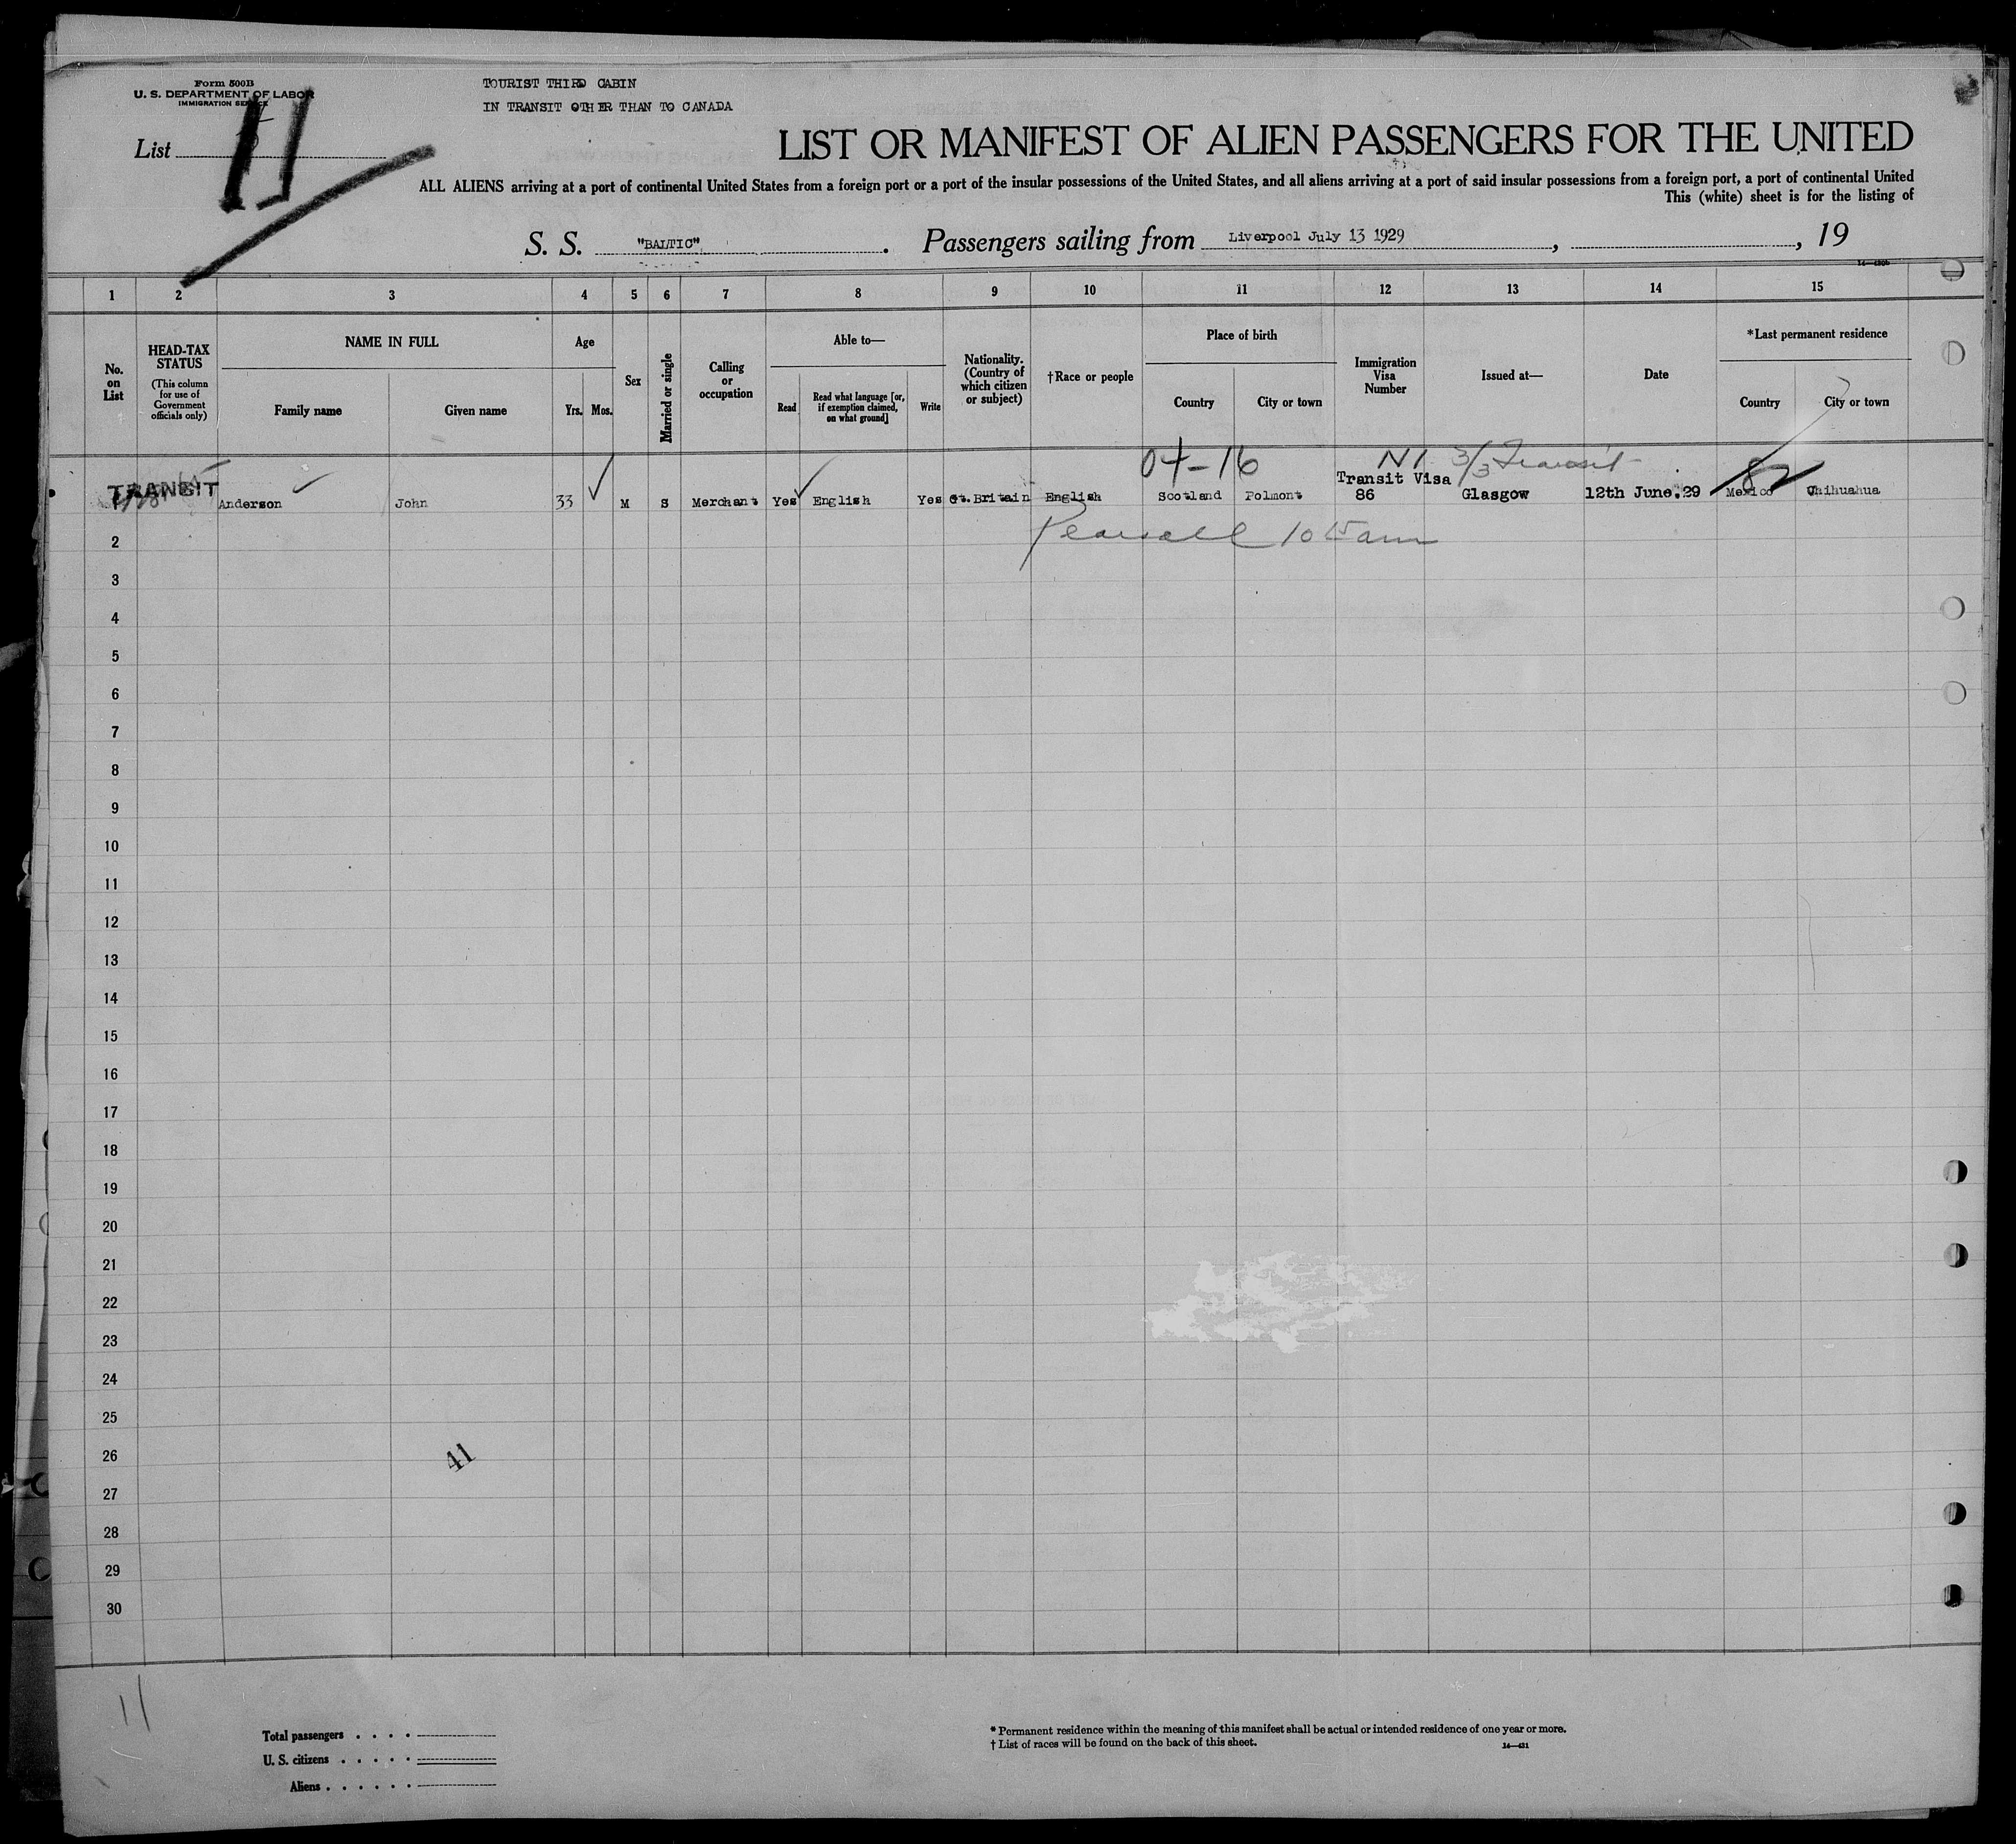 Form 500B
U. S. DEPARTMENT OF LABOR
IMMIGRATION SERVICE
TOURIST THIRD CABIN
IN TRANSIT OTHER THAN TO CANADA
List 11
LIST OR MANIFEST OF ALIEN PASSENGERS FOR THE UNITED
ALL ALIENS arriving at a port of continental United States from a foreign port or a port of the insular possessions of the United States, and all aliens arriving at a port of said insular possessions from a foreign port, a port of continental United
This (white) sheet is for the listing of
S. S. "BALTIC" . Passengers sailing from Liverpool July 13 1929 , , 19
14—430b
1 2 3 4 5 6 7 8 9 10 11 12 13 14 15
No. on List
HEAD-TAX STATUS
(This column for use of Government officials only)
NAME IN FULL
Family name
Given name
Age
Yrs. Mos.
Sex
Married or single
Calling or occupation
Able to—
Read
Read what language [or, if exemption claimed, on what ground]
Write
Nationality. (Country of which citizen or subject)
†Race or people
Place of birth
Country
City or town
Immigration Visa Number
Issued at—
Date
*Last permanent residence
Country
City or town
04-16 N1 3/3 Transit 82
TRANSIT Anderson John 33 M S Merchant Yes English Yes Gt.Britain English Scotland Polmont Transit Visa 86 Glasgow 12th June.29 Mexico Chihuahua
10 15 am
2
3
4
5
6
7
8
9
10
11
12
13
14
15
16
17
18
19
20
21
22
23
24
25
26
41
27
28
29
30
11
Total passengers . . . .
U. S. citizens . . . . .
Aliens . . . . . .
* Permanent residence within the meaning of this manifest shall be actual or intended residence of one year or more.
† List of races will be found on the back of this sheet.
14—431